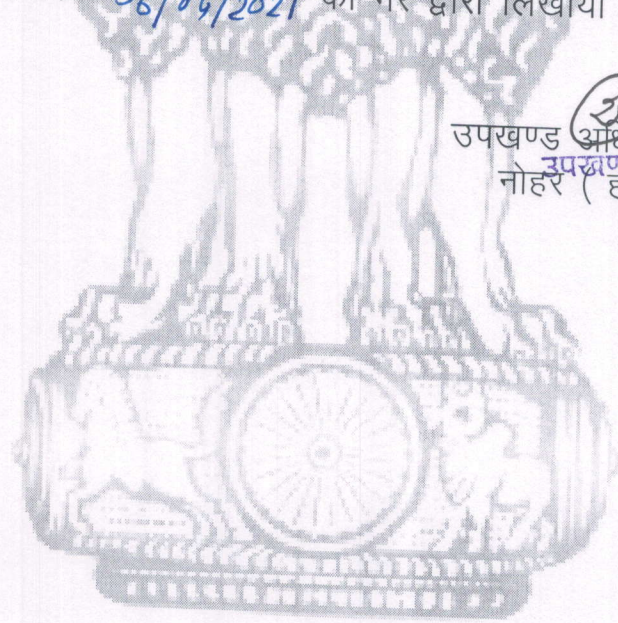 06/04/2021 को मेरे द्वारा लिखाया
उपखण्ड
उपखण
नोहर ( ह